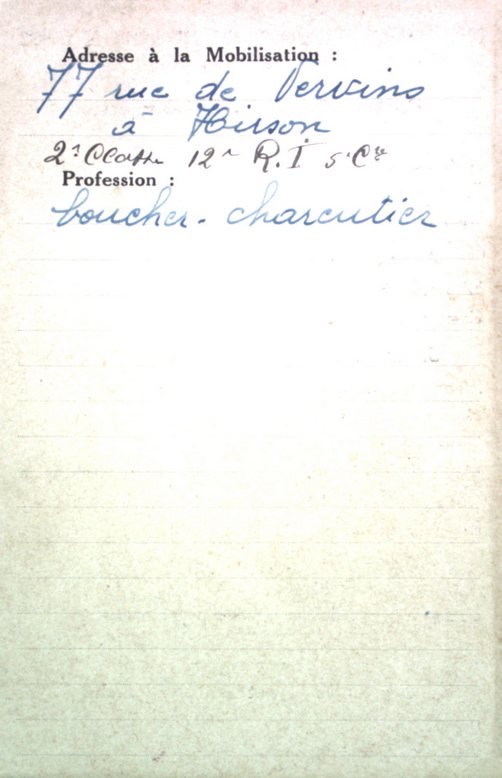 Adresse à la Mobilisation :
77 rue de Vervins
à Hirson
2e Classe 12e R.I 5e Cie
Profession :
boucher-charcutier